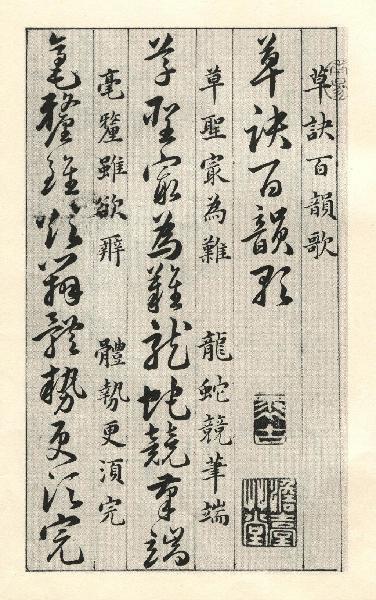 草訣百韻歌
草訣百韻歌
草聖宸為難　龍蛇競筆端
草聖宸為難龍蛇競筆端
毫釐雖欲辨　體勢更須完
毫釐雖欲辨體勢更須完